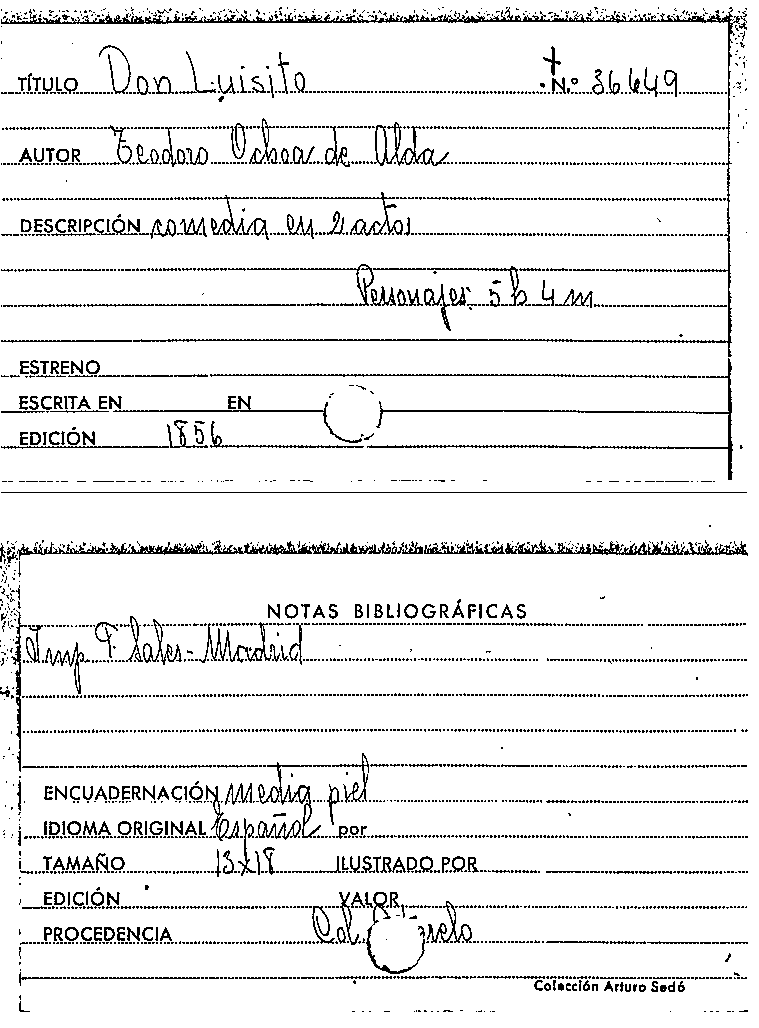 TÍTULO Don Luisito N.º 36649
AUTOR Teodoro Ochoa de Alda
DESCRIPCIÓN comedia en 2 actos
Personajes: 5 h 4 m
ESTRENO
ESCRITA EN EN
EDICIÓN 1856
NOTAS BIBLIOGRÁFICAS
Imp. F. Sales - Madrid
ENCUADERNACIÓN media piel
IDIOMA ORIGINAL Español por
TAMAÑO 13x18 ILUSTRADO POR
EDICIÓN VALOR
PROCEDENCIA Col.
Colección Arturo Sedó